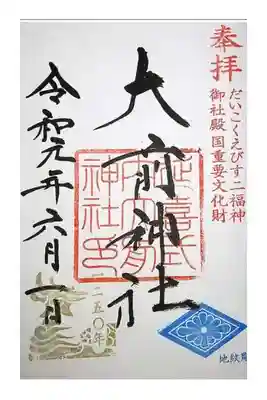 奉拝
だいこくえびす二福神
御社殿国重要文化財
大前神社
延喜式内大前神社印
一二五〇年
令和元年六月一日